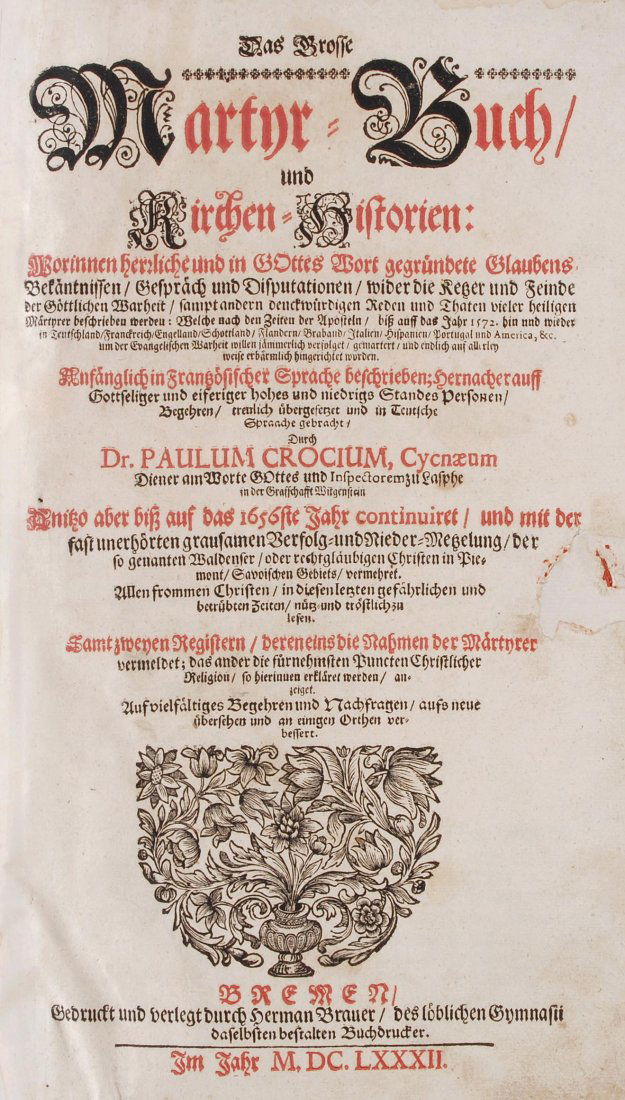 Das Grosse
Martyr-Buch/
und
Kirchen-Historien:
Worinnen herrliche und in GOttes Wort gegründete Glaubens-
Bekäntnissen/ Gespräch und Disputationen/ wider die Ketzer und Feinde
der Göttlichen Warheit/ sampt andern denckwürdigen Reden und Thaten vieler heiligen
Märtyrer beschrieben werden: Welche nach den Zeiten der Aposteln/ biß auff das Jahr 1572. hin und wieder
in Teutschland/Franckreich/Engelland/Schottland/ Flandern/Braband/Italien/Hispanien/Portugal und America, &c.
um der Evangelischen Warheit willen jämmerlich verfolget/ gemartert/ und endlich auf allerley
weise erbärmlich hingerichtet worden.
Anfänglich in Frantzösischer Sprache beschrieben; Hernacher auff
Gottseliger und eiferiger hohes und niedrigs Standes Personen/
Begehren/ treulich übergesetzet und in Teutsche
Spraache gebracht/
Durch
Dr. PAULUM CROCIUM, Cycnæum
Diener am Worte GOttes und Inspectorem zu Lasphe
in der Graffschafft Witgenstein
Anitzo aber biß auf das 1656ste Jahr continuiret/ und mit der
fast unerhörten grausamen Verfolg-und Nieder-Metzelung/ der
so genanten Waldenser/ oder rechtgläubigen Christen in Pie-
mont/ Savoischen Gebiets/ vermehret.
Allen frommen Christen/ in diesen letzten gefährlichen und
betrübten Zeiten/ nütz-und tröstlich zu
lesen.
Samt zweyen Registern/ deren eins die Nahmen der Märtyrer
vermeldet; das ander die fürnehmsten Puncten Christlicher
Religion/ so hierinnen erkläret werden/ an-
zeiget.
Auf vielfältiges Begehren und Nachfragen/ aufs neue
übersehen und an einigen Orthen ver-
bessert.
BREMEN/
Gedruckt und verlegt durch Herman Brauer/ des löblichen Gymnasii
daselbsten bestalten Buchdrucker.
Im Jahr M. DC. LXXXII.